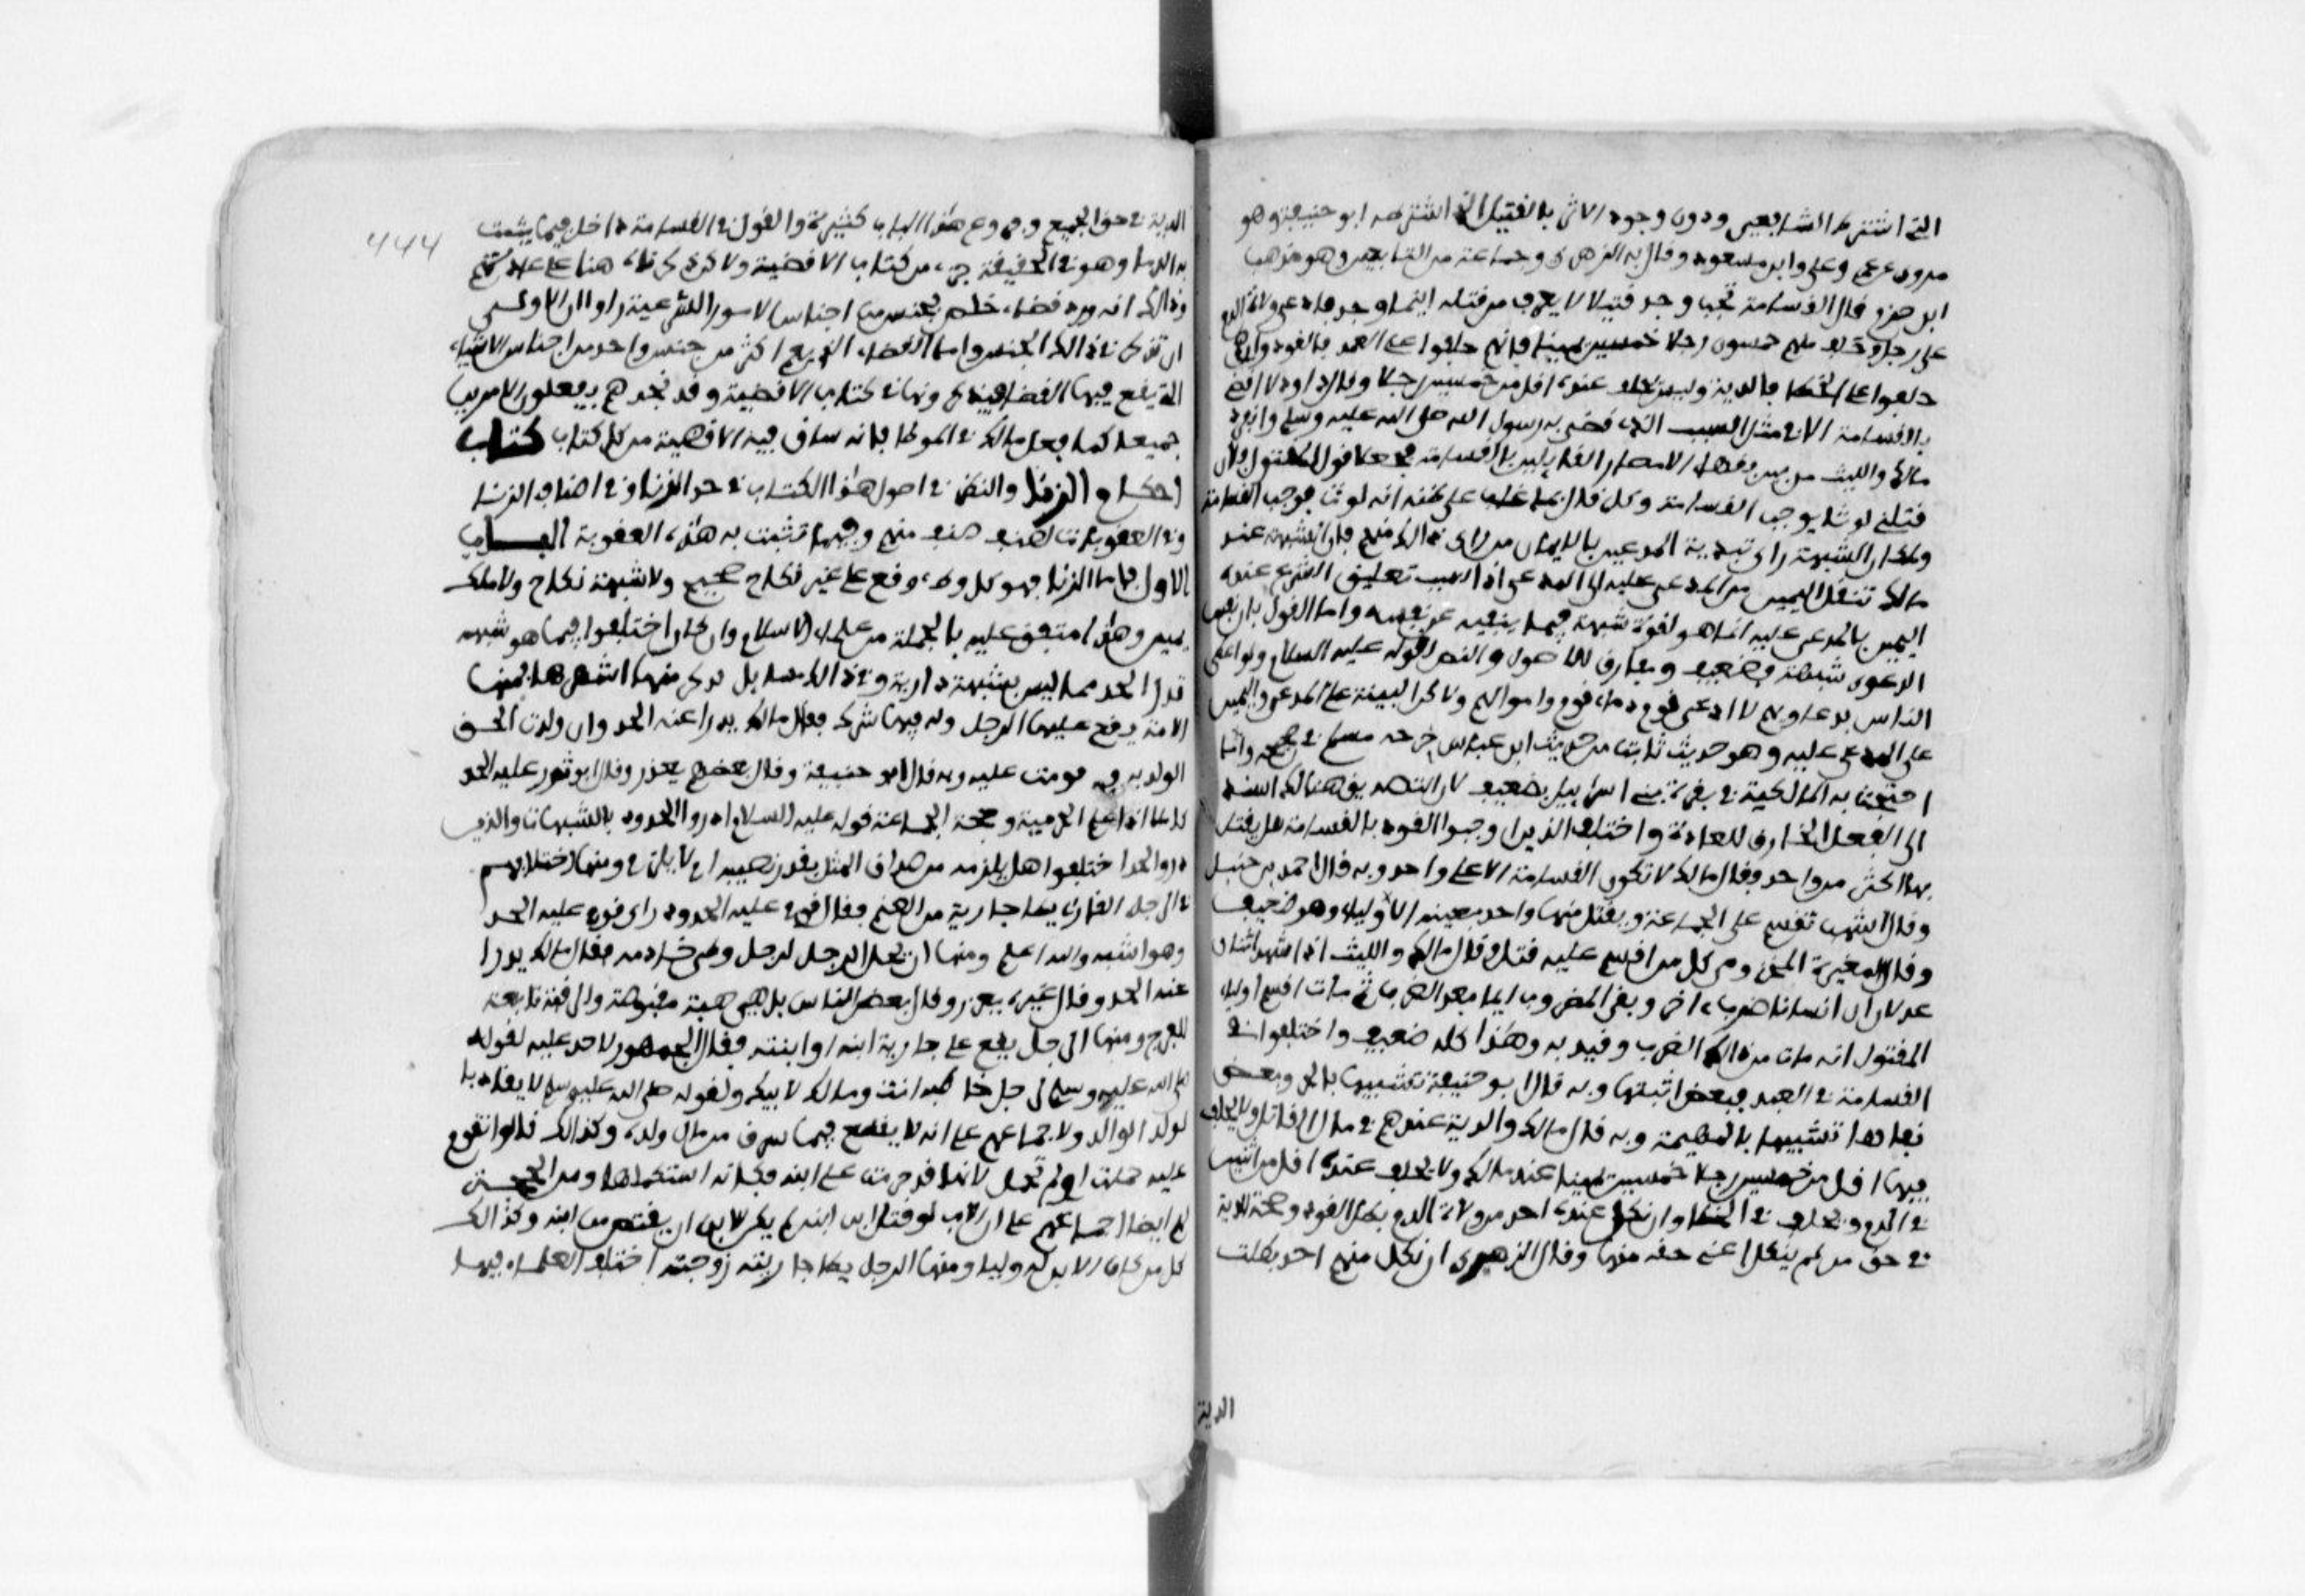 التي اشترط الشافعي ودون وجود الاثر بالقتيل الذي اشترطه ابو حنيفة وهو
مروي عن عمر وعلي وابن مسعود وقال به الزهري وجماعة من التابعين وهو مذهب
ابن حزم قال القسامة تجب وجد قتيلا لا يعرف من قتله اينما وجد فادعى ولاة الدم
على رجل وحلف منهم خمسون رجلا خمسين يمينا فانهم حلفوا على العمد فالقود وان هم
حلفوا على الخطا فالدية وليس يحلف عنده اقل من خمسين رجلا وقال داود لا اقضي
بالقسامة الا في مثل السبب الذي قضى به رسول الله صلى الله عليه وسلم وانفرد
مالك والليث من بين فقهاء الامصار القايلين بالقسامة فجعلا قول المقتول فلان
قتلني لوثا يوجب القسامة وكل قال بما غلب على ظنه انه لوث يوجب القسامة
ولمكان الشبهة راى تبدية المدعين بالايمان من راى ذالك منهم فان الشبهة عند
مالك تنقل اليمين من المدعى عليه الى المدعي اذ السبب تعليق الشرع عنده
اليمين بالمدعى عليه انما هو لقوة شبهته فيما ينفيه عن نفسه واما القول بان نفس
الدعوى شبهة فضعيف ومفارق للاصول والنص لقوله عليه السلام ولو اعطي
الناس بدعاويهم لادعى قوم دماء قوم واموالهم ولاكن البينة على المدعي واليمين
على المدعى عليه وهو حديث ثابت من حديث ابن عباس خرجه مسلم في صحيحه وما
احتجت به المالكية في بقرة بني اسراييل فضعيف لان التصديق هنالك اسند
الى الفعل الخارق للعادة واختلف الذين اوجبوا القود بالقسامة هل يقتل
بها اكثر من واحد فقال مالك لا تكون القسامة الا على واحد وبه قال احمد بن حنبل
وقال اشهب تقسم على الجماعة ويقتل منها واحد يعينه الاولياء وهو ضعيف
وقال المغيرة المخزومي كل من اقسم عليه قتل وقال مالك والليث اذا شهد اثنان
عدلان ان انسانا ضرب اخر وبقي المضروب اياما بعد الضرب ثم مات اقسم اولياء
المقتول انه مات من ذالك الضرب وقيد به وهذا كله ضعيف واختلفوا في
القسامة في العبد فبعض اثبتها وبه قال ابو حنيفة تشبيها بالحر وبعض
نفاها تشبيها بالبهيمة وبه قال مالك والدية عندهم في مال القاتل ولا يحلف
فيها اقل من خمسين رجلا خمسين يمينا عند مالك ولا يحلف عنده اقل من اثنين
في الدم ويحلف في الخطا وان نكل عنده احد من ولاة الدم بطل القود وصحة الدية
في حق من لم ينكل اعني حقه منها وقال الزهري ان نكل منهم احد بطلت
الدية
444
الدية في حق الجميع وفروع هذا الباب كثيرة والقول في القسامة داخل فيما يثبت
به الدما وهو في الحقيقة جزء من كتاب الاقضية ولاكن ذكرناه هنا على عادتهم
وذالك انه ورد قضاء خاص بجنس من اجناس الامور الشرعية راوا ان الاولى
ان تذكر في ذالك الجنس واما القضاء الذي يعم اكثر من جنس واحد من اجناس الاشياء
التي يقع فيها القضا فيذكرونها في كتاب الاقضية وقد تجدهم يفعلون الامرين
جميعا كما فعل مالك في الموطا فانه ساق فيه الاقضية من كل كتاب كتاب
احكام الزنا والنظر في اصول هذا الكتاب في حد الزنا وفي اصناف الزناة
وفي العقوبات لصنف صنف منهم وفيما تثبت به هذه العقوبة الباب
الاول فاما الزنا فهو كل وطء وقع على غير نكاح صحيح ولا شبهة نكاح ولا ملك
يمين وهذا متفق عليه بالجملة من علماء الاسلام وان كان اختلفوا فيما هو شبهة
تدرا الحد مما ليس بشبهة دارية وفي ذالك مسايل نذكر منها اشهرها فمنها
الامة يقع عليها الرجل وله فيها شرك فقال مالك يدرا عنه الحد وان ولدت الحق
الولد به وقومت عليه وبه قال ابو حنيفة وقال بعضهم يعزر وقال ابو ثور عليه الحد
كاملا اذا علم الحرمية وحجة الجماعة قوله عليه السلام ادروا الحدود بالشبهات والذين
دروا الحد اختلفوا هل يلزمه من صداق المثل بقدر نصيبه ام لا يلزم ومنها اختلافهم
في الرجل الغازي يطا جارية من الغنم فقال قوم عليه الحدود راى قوم عليه الحد
وهو اشبه والله اعلم ومنها ان يحل الرجل لرجل وطي خادمه فقال مالك يدرا
عنه الحد وقال غيره يعزر وقال بعض الناس بل هي هبة مقبوضة والرقبة تابعة
للفرج ومنها الرجل يقع على جارية ابنه او ابنته فقال الجمهور لا حد عليه لقوله
صلى الله عليه وسلم لرجل خاطبه انت ومالك لابيك ولقوله صلى الله عليه وسلم لا يقاد با
لولد الوالد ولاجماعهم على انه لا يقطع فيما سرق من مال ولده وكذالك قالوا تقوم
عليه حملت او لم تحمل لانها قد حرمت على ابنه فكانه استهلكها ومن الحجة
لهم ايضا اجماعهم على ان الاب لو قتل ابن ابنه لم يكن للابن ان يقتص من ابيه وكذالك
كل من كان الابن له وليا ومنها الرجل يطا جارية زوجته اختلف العلماء فيها